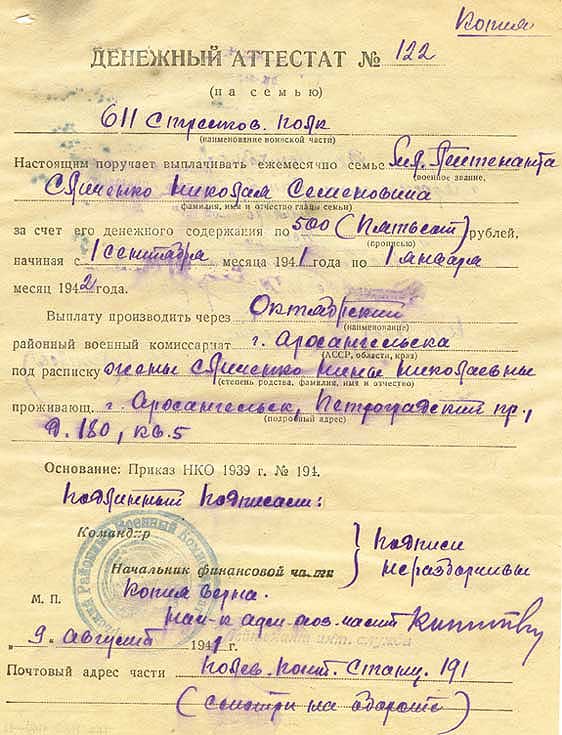 Копия
ДЕНЕЖНЫЙ АТТЕСТАТ № 122
(на семью)
611 стрелков. полк
(наименование воинской части)
Настоящим поручает выплачивать ежемесячно семье Мл. Лейтенанта
(военное звание,
Николая Семеновича
фамилия, имя и отчество главы семьи)
за счет его денежного содержания по 500 (Пятьсот) рублей,
(прописью)
начиная с 1 сентября месяца 1941 года по 1 января
месяц 1942 года.
Выплату производить через Октябрьский
(наименование)
районный военный комиссариат г. Архангельска
(АССР, области, края)
под расписку жены Нины Николаевны
(степень родства, фамилия, имя и отчество)
проживающ. г. Архангельск, Петроградский пр.,
(подробный адрес)
д. 180, кв. 5
Основание: Приказ НКО 1939 г. № 194.
Подлинный подписали:
Командир
Подписи
Начальник финансовой части
неразборчивы
М. П.
Копия верна.
„ 9 “ август 1941 г.
Почтовый адрес части Полев. почт. станц. 191
(смотри на обороте)